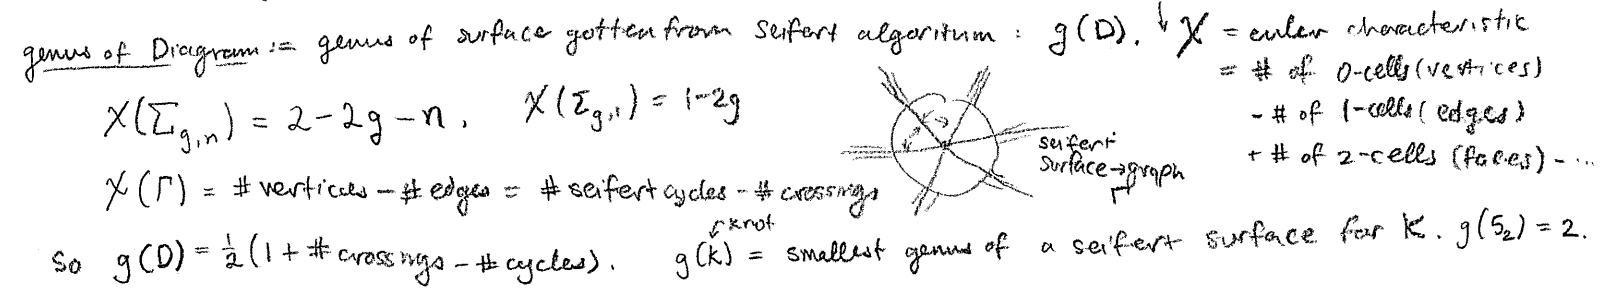 genus of Diagram := genus of surface gotten from Seifert algoritum : g(D). ↓ χ = euler characteristic
= # of 0-cells (vertices)
- # of 1-cells (edges)
+ # of 2-cells (faces) - ...
χ(Σ_{g,n}) = 2-2g-n, χ(Σ_{g,1}) = 1-2g
seifert
surface → graph
Γ
χ(Γ) = # vertices - # edges = # seifert cycles - # crossings
So g(D) = ½(1 + # crossings - # cycles). g(k) = smallest genus of a seifert surface for K. g(5₂) = 2.
knot